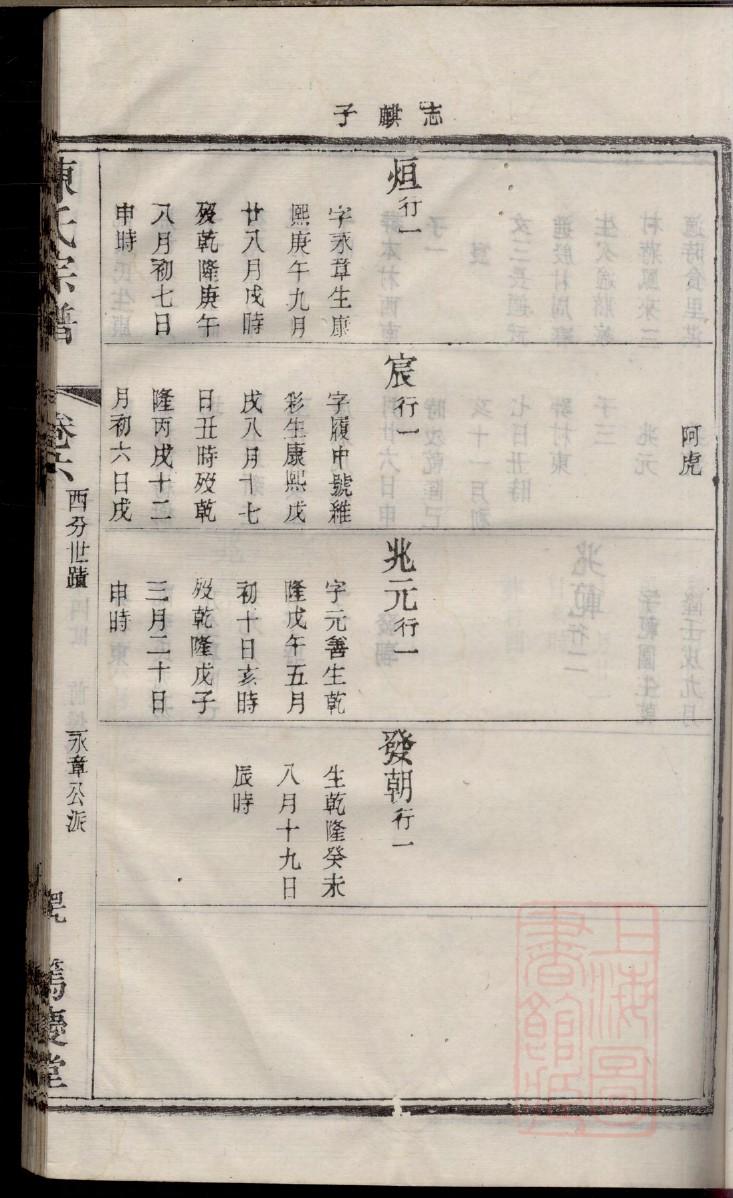 志麒子
阿虎
烜行一
字永章生康
熙庚午九月
廿八月戌時
歿乾隆庚午
八月初七日
申時
宸行一
字履中號維
彩生康熙戊
戌八月十七
日丑時歿乾
隆丙戌十二
月初六日戌
兆元行一
字元善生乾
隆戊午五月
初十日亥時
歿乾隆戊子
三月二十日
申時
發朝行一
生乾隆癸未
八月十九日
辰時
陳氏宗譜
卷六
西分世蹟
永章公派
篤慶堂
上海圖書館藏